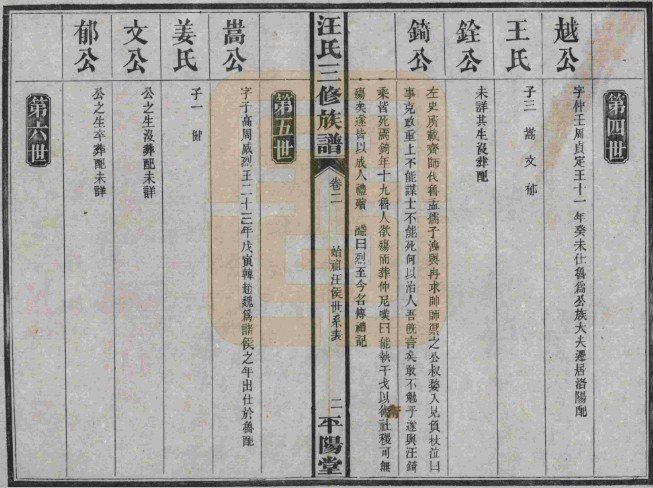 第四世
越公
字仲壬周貞定王十一年癸未仕魯為公族大夫遷居洛陽配
王氏
子三 嵩 文 郁
銓公
未詳其生没葬配
錡公
左史所載齊師伐魯孟孺子洩與冉求帥師禦之公叔務人見負杖泣曰
事充政重上不能謀士不能死何以治人吾既言矣敢不勉乎遂與汪錡
乘皆死焉錡年十九魯人欲殤而葬仲尼嘆曰能執干戈以衛社稷可無
殤矣遂皆以成人禮殯 諡曰烈至今名傳禮記
汪氏三修族譜
卷二
始祖汪侯世系表
二
平陽堂
第五世
嵩公
字子高周威烈王二十三年戊寅韓趙魏為諸侯之年出仕於魯配
姜氏
子一
文公
公之生沒葬配未詳
郁公
公之生卒葬配未詳
第六世